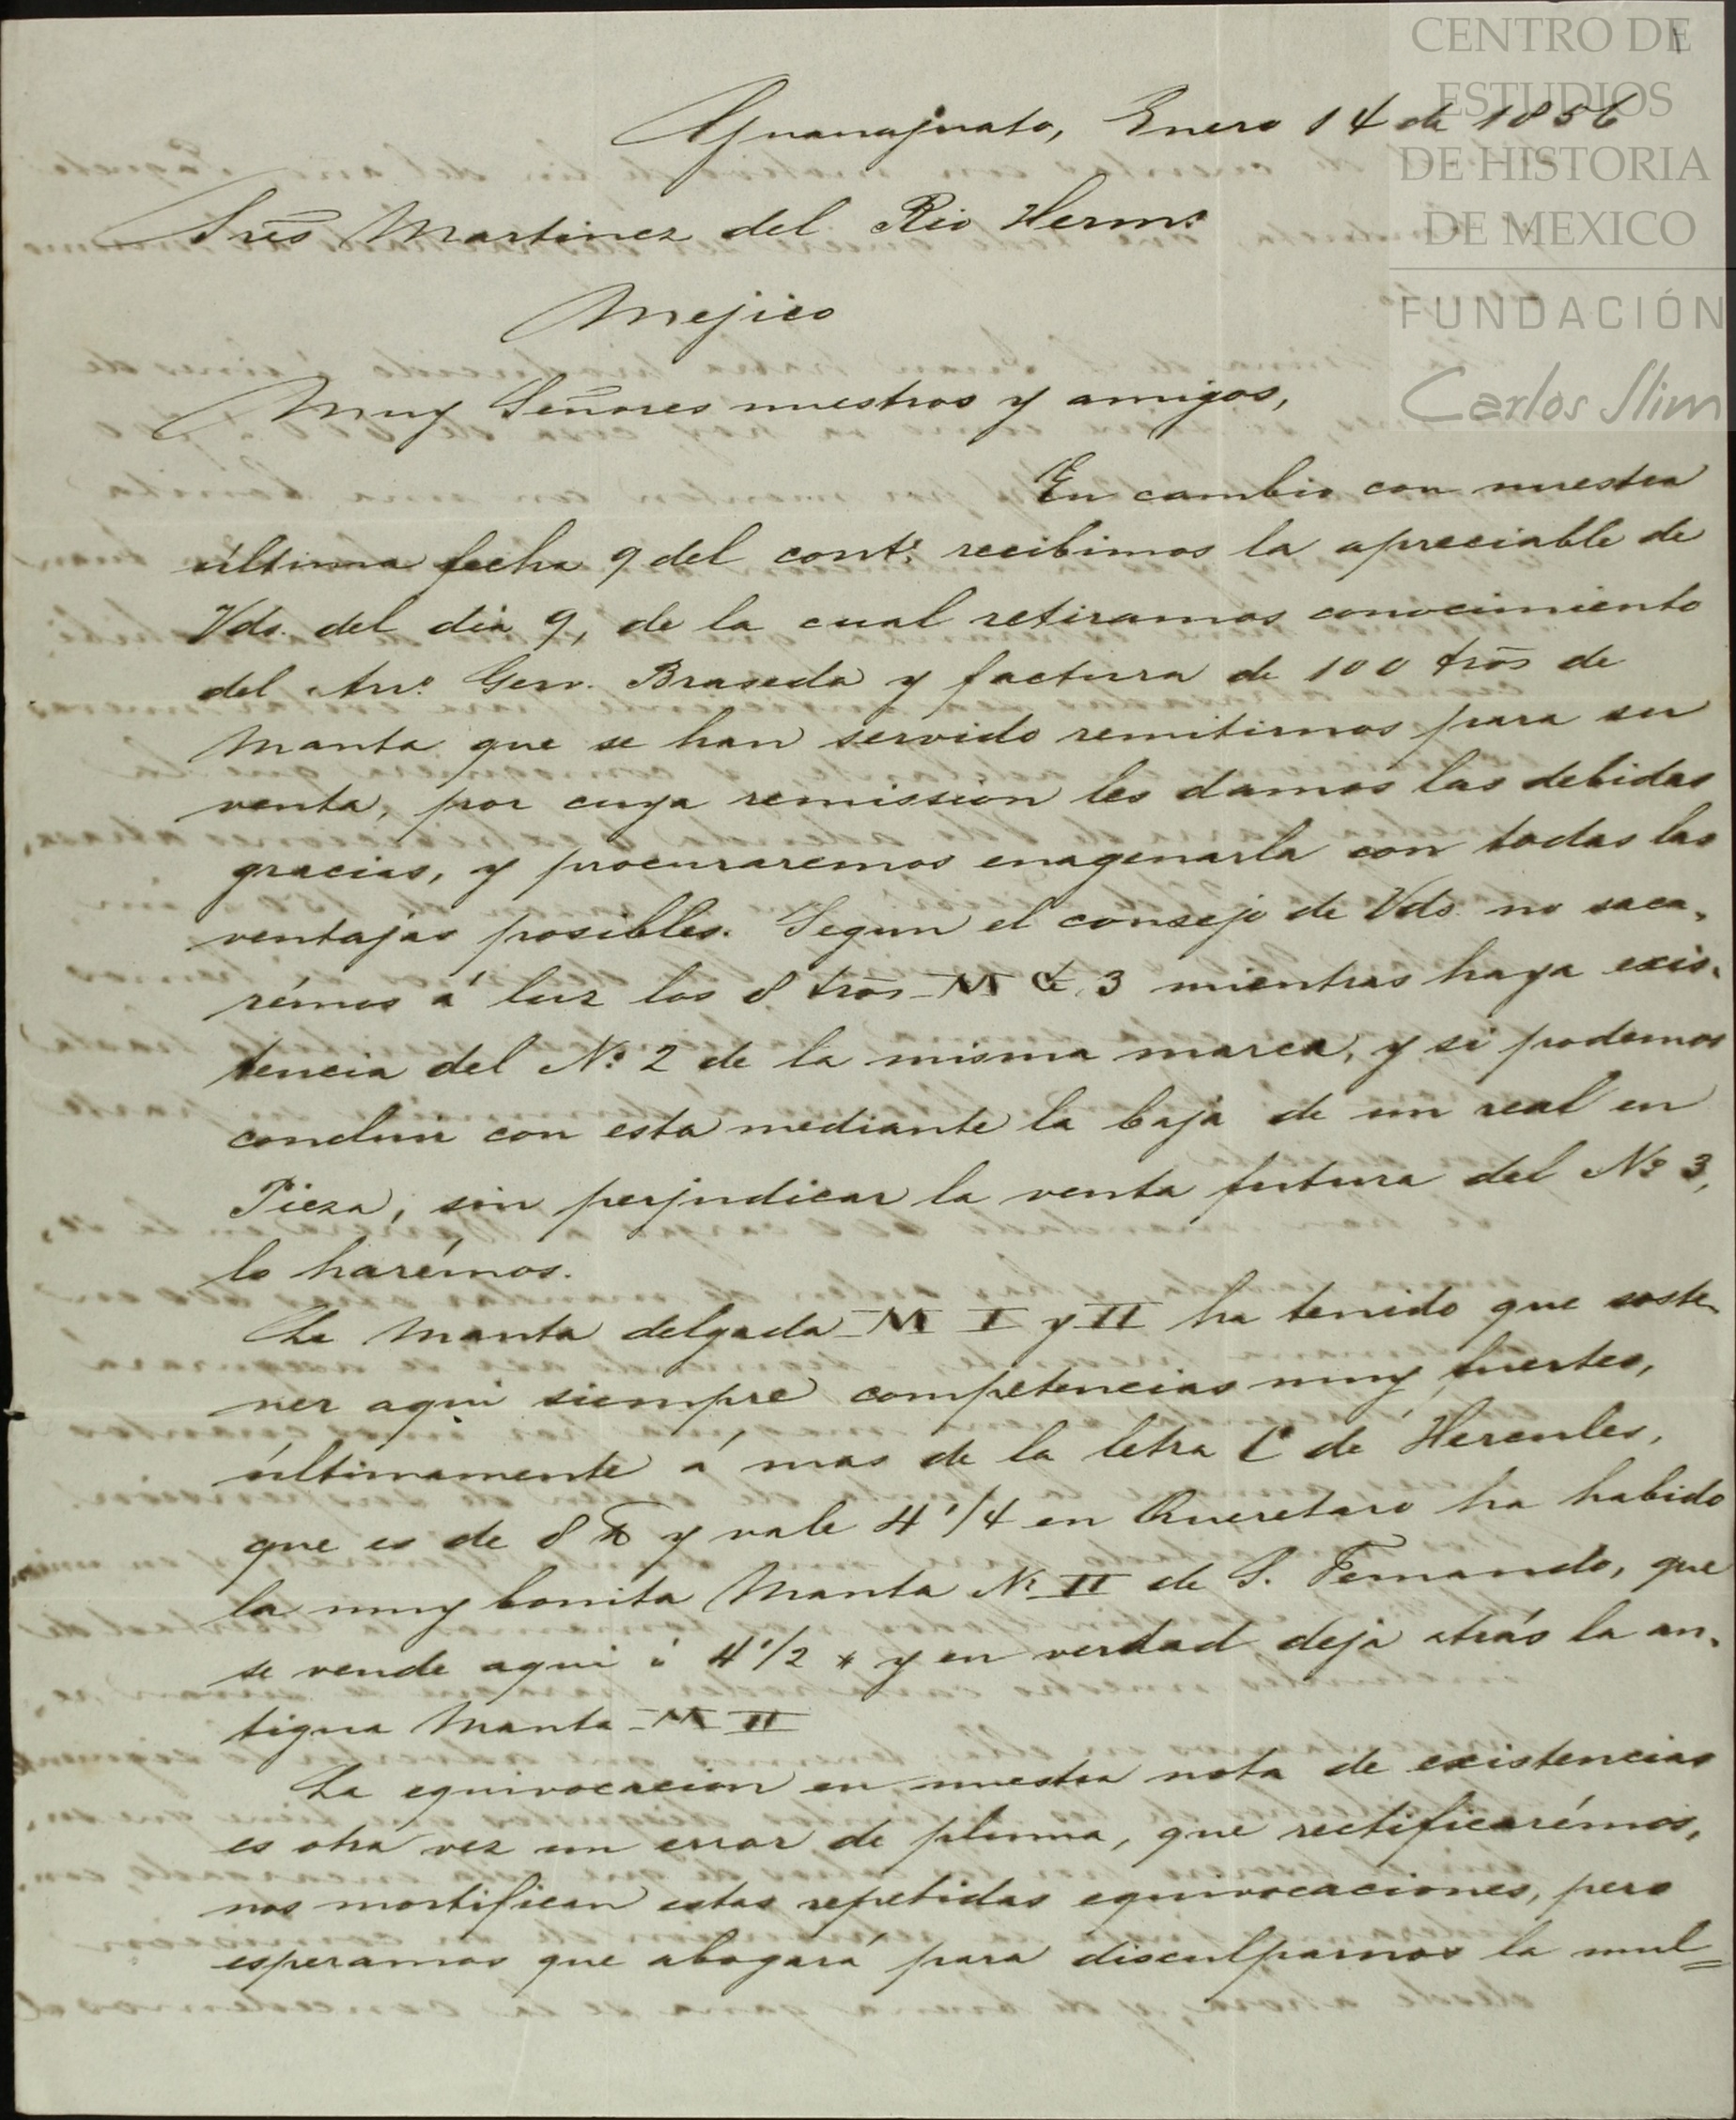 CENTRO DE
ESTUDIOS
DE HISTORIA
DE MEXICO
FUNDACIÓN
Carlos Slim
Guanajuato, Enero 14 de 1856
Sres Martinez del Rio Herms
Mejico
Muy Señores nuestros y amigos,
En cambio con nuestra
última fecha 9 del contе recibimos la apreciable de
Vds. del dia 9, de la cual retiramos conocimiento
del Arro Braseda y factura de 100 tros de
Manta que se han servido remitirnos para su
venta, por cuya remission les damos las debidas
gracias, y procuraremos enagenarla con todas las
ventajas posibles. Segun el consejo de Vds. no saca-
rémos á luz los 8 tros M 3 mientras haya exis-
tencia del No 2 de la misma marca, y si podemos
concluir con esta mediante la baja de un real en
Pieza, sin perjudicar la venta futura del No 3,
lo harémos.
La Manta delgada M I y II ha tenido que soste-
ner aqui siempre competencias muy fuertes,
últimamente á mas de la letra C de Hercules,
que es de 8 lb y vale 4 1/4 en Queretaro ha habido
la muy bonita Manta No II de S. Fernando, que
se vende aqui á 4 1/2 y en verdad deja atrás la an-
tigua Manta M II
La equivocacion en nuestra nota de existencias
es otra vez un error de pluma, que rectificarémos,
nos mortifican estas repetidas equivocaciones, pero
esperamos que abogará para disculparnos la mul=